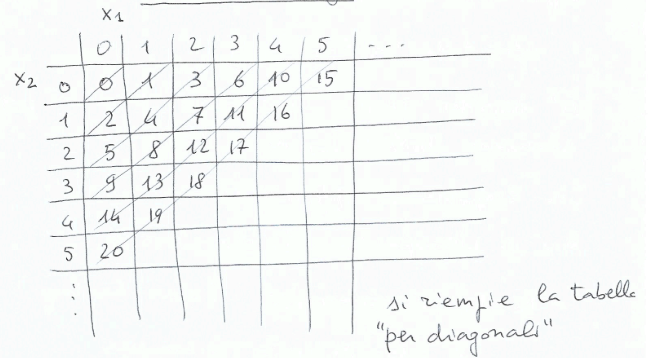 x1
0 1 2 3 4 5 ...
x2 0 0 1 3 6 10 15
1 2 4 7 11 16
2 5 8 12 17
3 9 13 18
4 14 19
5 20
⋮
si riempie la tabella
"per diagonali"